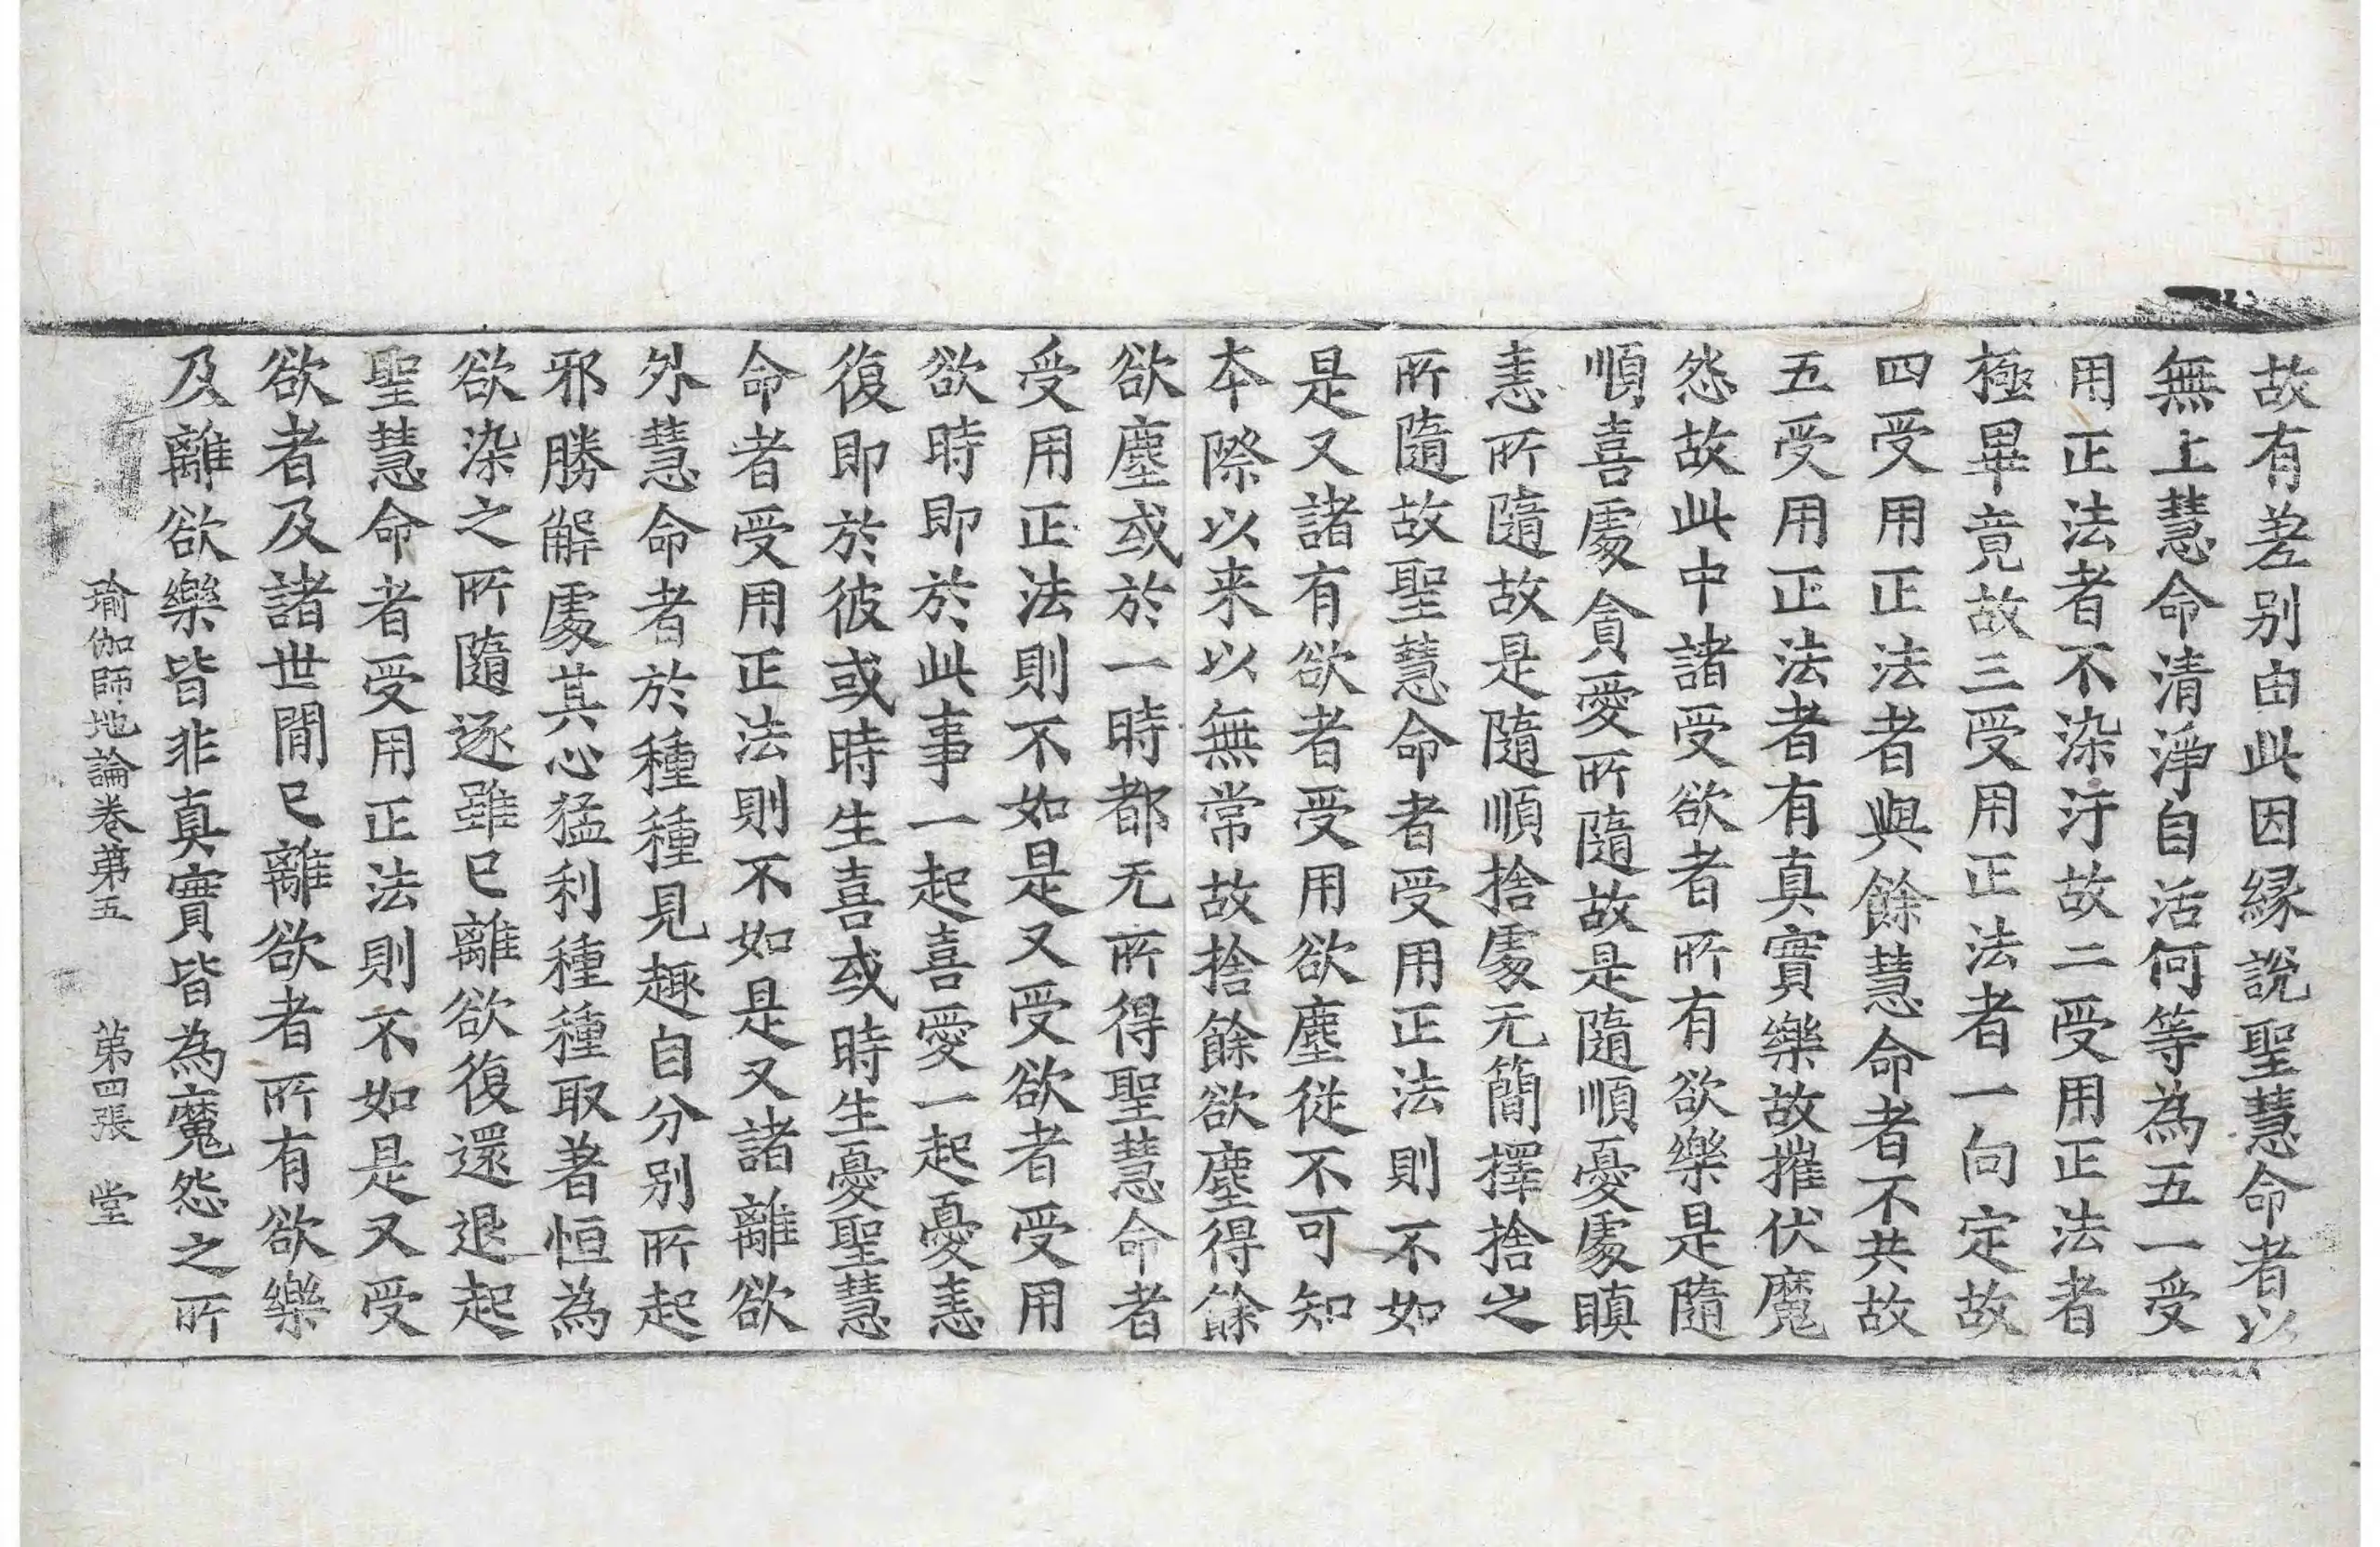 故有差别由此因縁說聖慧命者以
無上慧命清淨自活何等為五一受
用正法者不染汙故二受用正法者
極畢竟故三受用正法者一向定故
四受用正法者與餘慧命者不共故
五受用正法者有真實樂故摧伏魔
怨故此中諸受欲者所有欲樂是隨
順喜處貪愛所隨故是隨順憂處瞋
恚所隨故是隨順捨處无簡擇捨之
所隨故聖慧命者受用正法則不如
是又諸有欲者受用欲塵從不可知
本際以来以無常故捨餘欲塵得餘
欲塵或於一時都无所得聖慧命者
受用正法則不如是又受欲者受用
欲時即於此事一起喜愛一起憂恚
復即於彼或時生喜或時生憂聖慧
命者受用正法則不如是又諸離欲
外慧命者於種種見趣自分别所起
邪勝解處其心猛利種種取著恒為
欲染之所隨逐雖已離欲復還退起
聖慧命者受用正法則不如是又受
欲者及諸世間已離欲者所有欲樂
及離欲樂皆非真實皆為魔怨之所
瑜伽師地論卷第五　第四張　堂